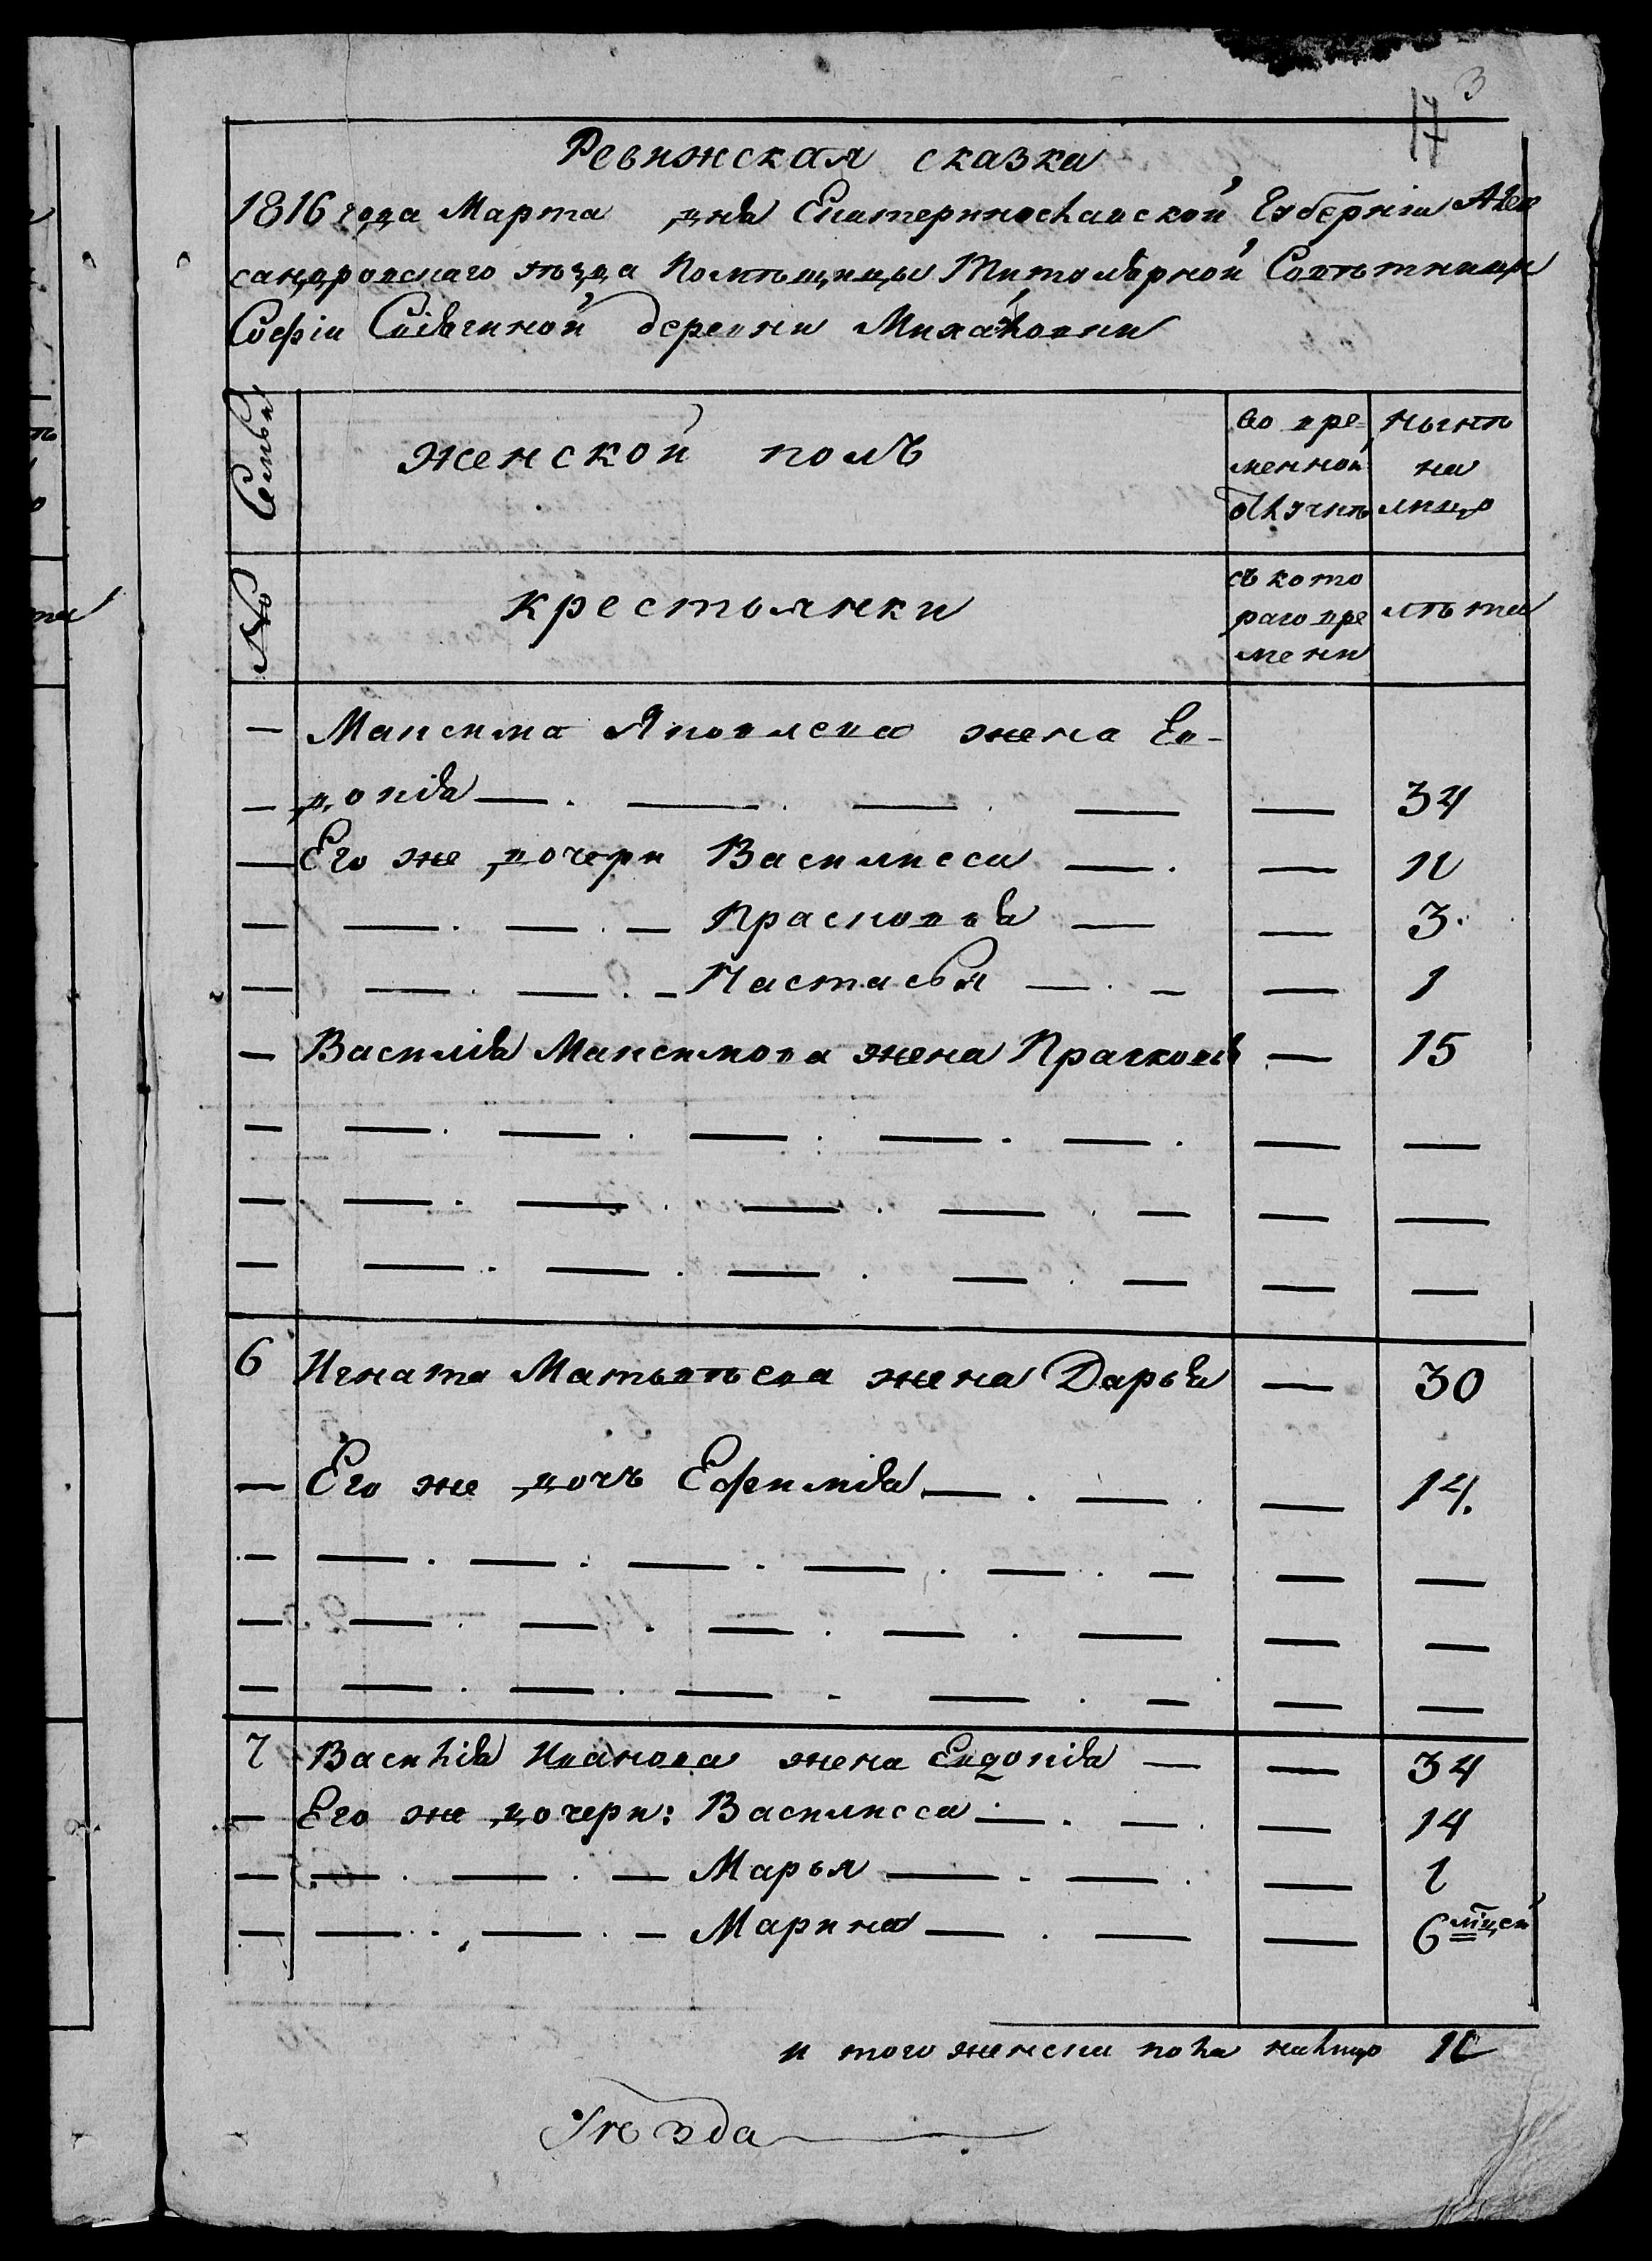 3
17
Ревижская сказка
1816 года Марта дня Екатеринославской Губерніи Алек
сандровскаго уѣзда Помѣщицы Титулярной Совѣтницы
Софіи деревни Михайловки
Семьи
женской полъ
во вре=
менной
отлучкѣ
нынѣ
на
лицо
№
крестьянки
съ кото
раго вре
мени
лѣта
— Максима Яковлева жена Ев-
— докія — . — . — . — — 34
— Его же дочери Василисса — . — 11
— — . — . — Прасковья — — 3.
— — . — . — Настасья — . — — 1
— Василія Максимова жена Прасковья — 15
— — . — . — . — . — . — —
— — . — . — . — . — — —
— — . — . — . — . — — —
6 Игната Матвѣева жена Дарья — 30
— Его же дочь Ефимія — . — . — 14.
— — . — . — . — . — . — — —
— — . — . — . — . — — —
— — . — . — - — . — — —
7 Василія Иванова жена Евдокія — — 34
— Его же дочери: Василисса — . — . — 14
— — . — . — Марья — . — . — 1
— — . — . — Марина — . — — 6 мцей
и того женска пола налицо 10
уѣзда